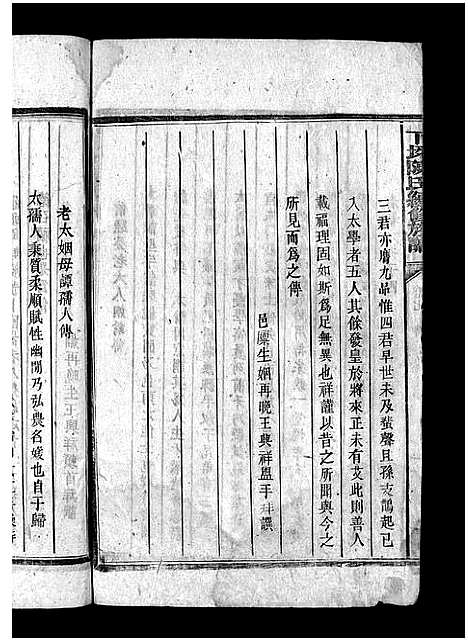 三君亦膺九品惟四君早世未及蜚聲且孫支鵲起已
入太學者五人其餘發皇於將來正未有艾此則善人
載福理固如斯爲足無異也祥謹以昔之所聞與今之
所見而爲之傳
邑廩生姻再晚王興祥盥手拜譔
老太姻母譚孺人傳
太孺人秉質柔順賦性幽閒乃弘農名媛也自于歸